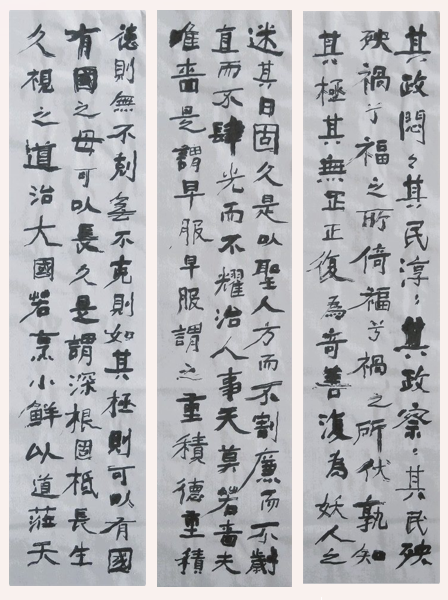 其政悶〻其民淳〻其政察〻其民殃
殃禍兮福之所倚福兮禍之所伏孰知
其極其無正正復為奇善復為妖人之
迷其日固久是以聖人方而不割廉而不劌
直而不肆光而不耀治人事天莫若嗇夫
唯嗇是謂早服早服謂之重積德重積
德則無不剋無不克則如其極則可以有國
有國之母可以長久是謂深根固柢長生
久視之道治大國若烹小鮮以道蒞天